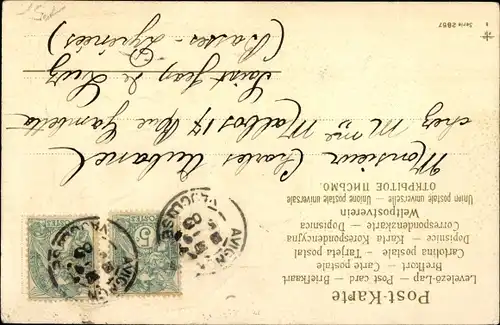 Post-Karte
Levelező-Lap — Post card — Briefkaart
Brefkort — Carte postale
Cartolina postale — Tarjeta postal
Dopisnice — Karta Korespondencyjna
Correspondenzkarte — Dopisnica
Weltpostverein
Union postale universelle — Unione postale universale
ОТКРЫТОЕ ПИСЬМО.
Monsieur Charles Aubanel
chez Mme Malbos 17 Rue Gambetta
Saint Jean de Luz
(Basses-Pyrénées)
Serie 2857
5
POSTES
AVIGNON
VAUCLUSE
AVIGNON
VAUCLUSE